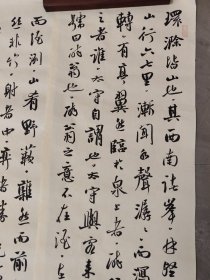 環滁皆山也其西南諸峯林壑
山行六七里漸聞水聲潺潺而瀉
轉有亭翼然臨於泉上者醉
之者誰太守自謂也太守與客來
號曰醉翁也醉翁之意不在酒在
而酒洌山肴野蔌雜然而前
絲非竹射者中弈者勝